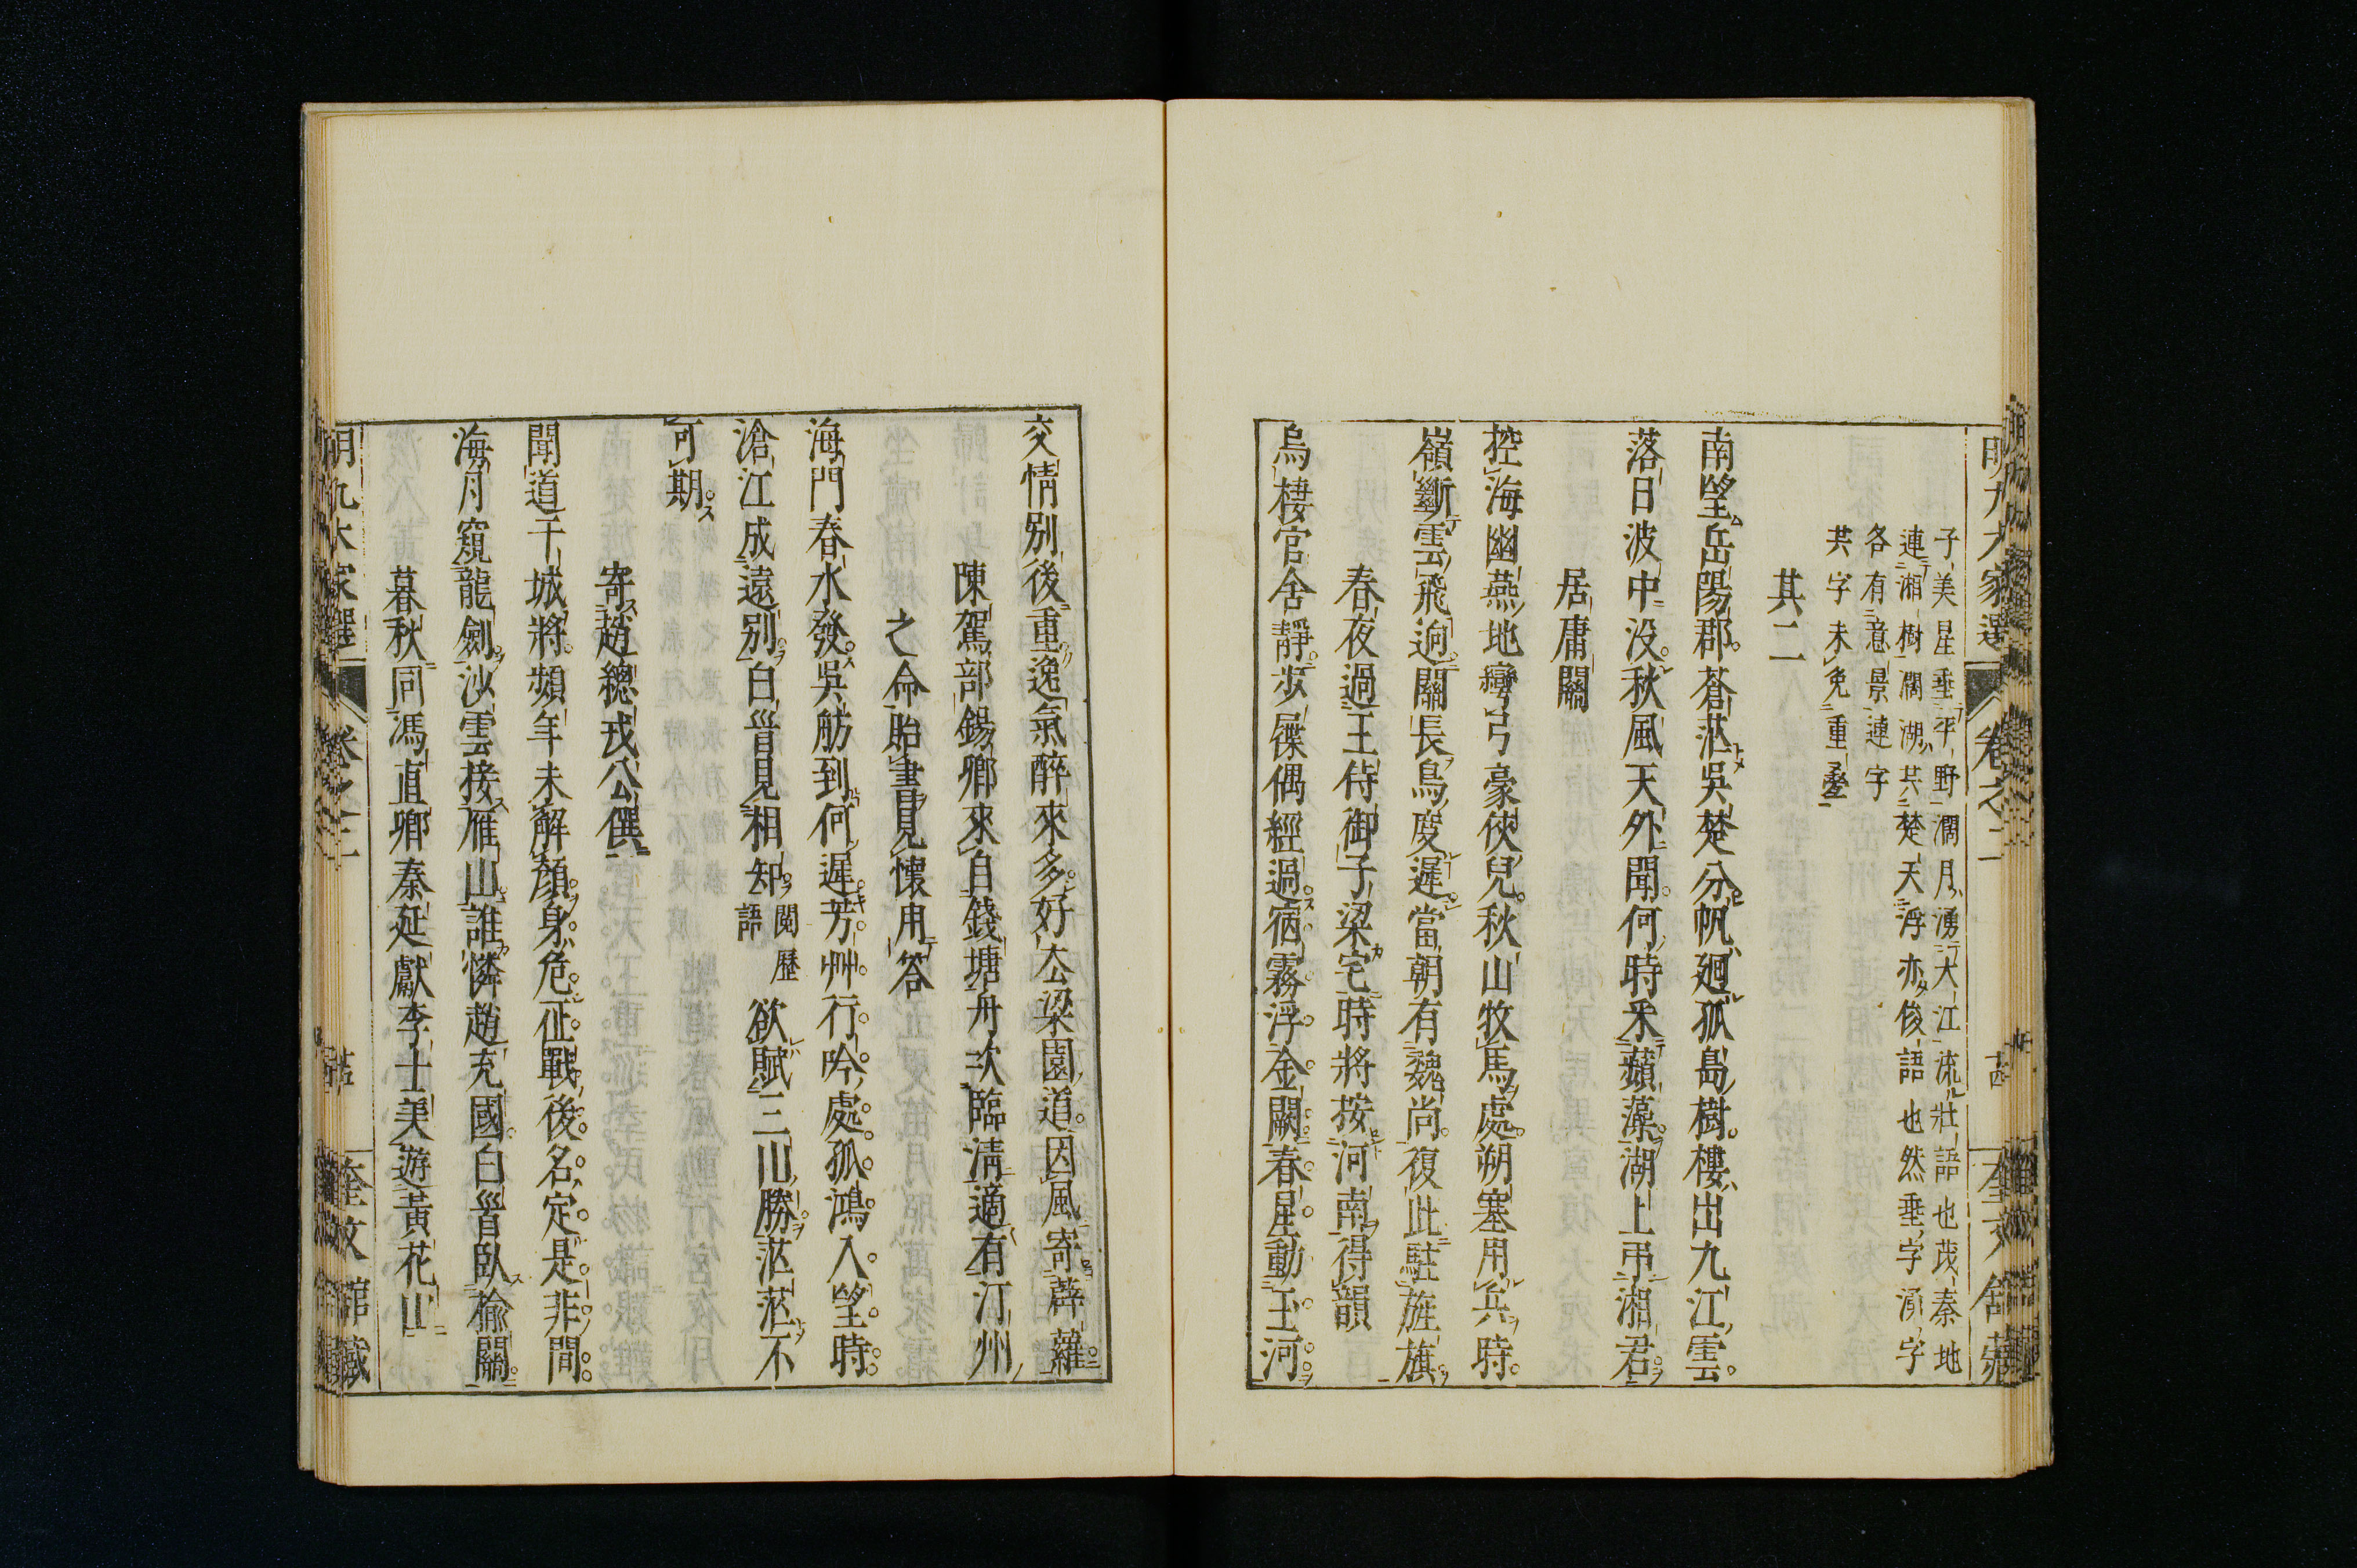 明九大家選 卷之二 十四 奎文館藏
子美星垂平野濶月湧大江流壯語也茂秦地
連湘樹濶湖共楚天浮亦俊語也然垂字湧字
各有意景連字
共字未免重疊
其二
南望岳陽郡蒼茫吳楚分帆廻孤島樹樓出九江雲
落日波中没秋風天外聞何時釆蘋藻湖上弔湘君
居庸關
控海幽燕地彎弓豪俠兒秋山牧馬處朔塞用兵時
嶺斷雲飛逈關長鳥度遲當朝有魏尚復此駐旌旗
春夜過王侍御子梁宅時將按河南得韻
烏棲官舍靜步屧偶經過宿霧浮金闕春星動玉河
交情別後重逸氣醉來多好去梁園道因風寄薜蘿
陳駕部錫卿來自錢塘舟次臨清適有汀州
之命貽書見懷用答
海門春水發吳舫到何遲芳艸行吟處孤鴻入望時
滄江成遠別白首見相知閱歷語欲賦三山勝茫茫不
可期
寄趙總戎公僎
聞道干城將頻年未解顏身危征戰後名定是非間
海月窺龍劍沙雲接雁山誰憐趙充國白首臥榆關
暮秋同馮直卿秦延獻李士美遊黃花山
明九大家選 卷之二 奎文館藏